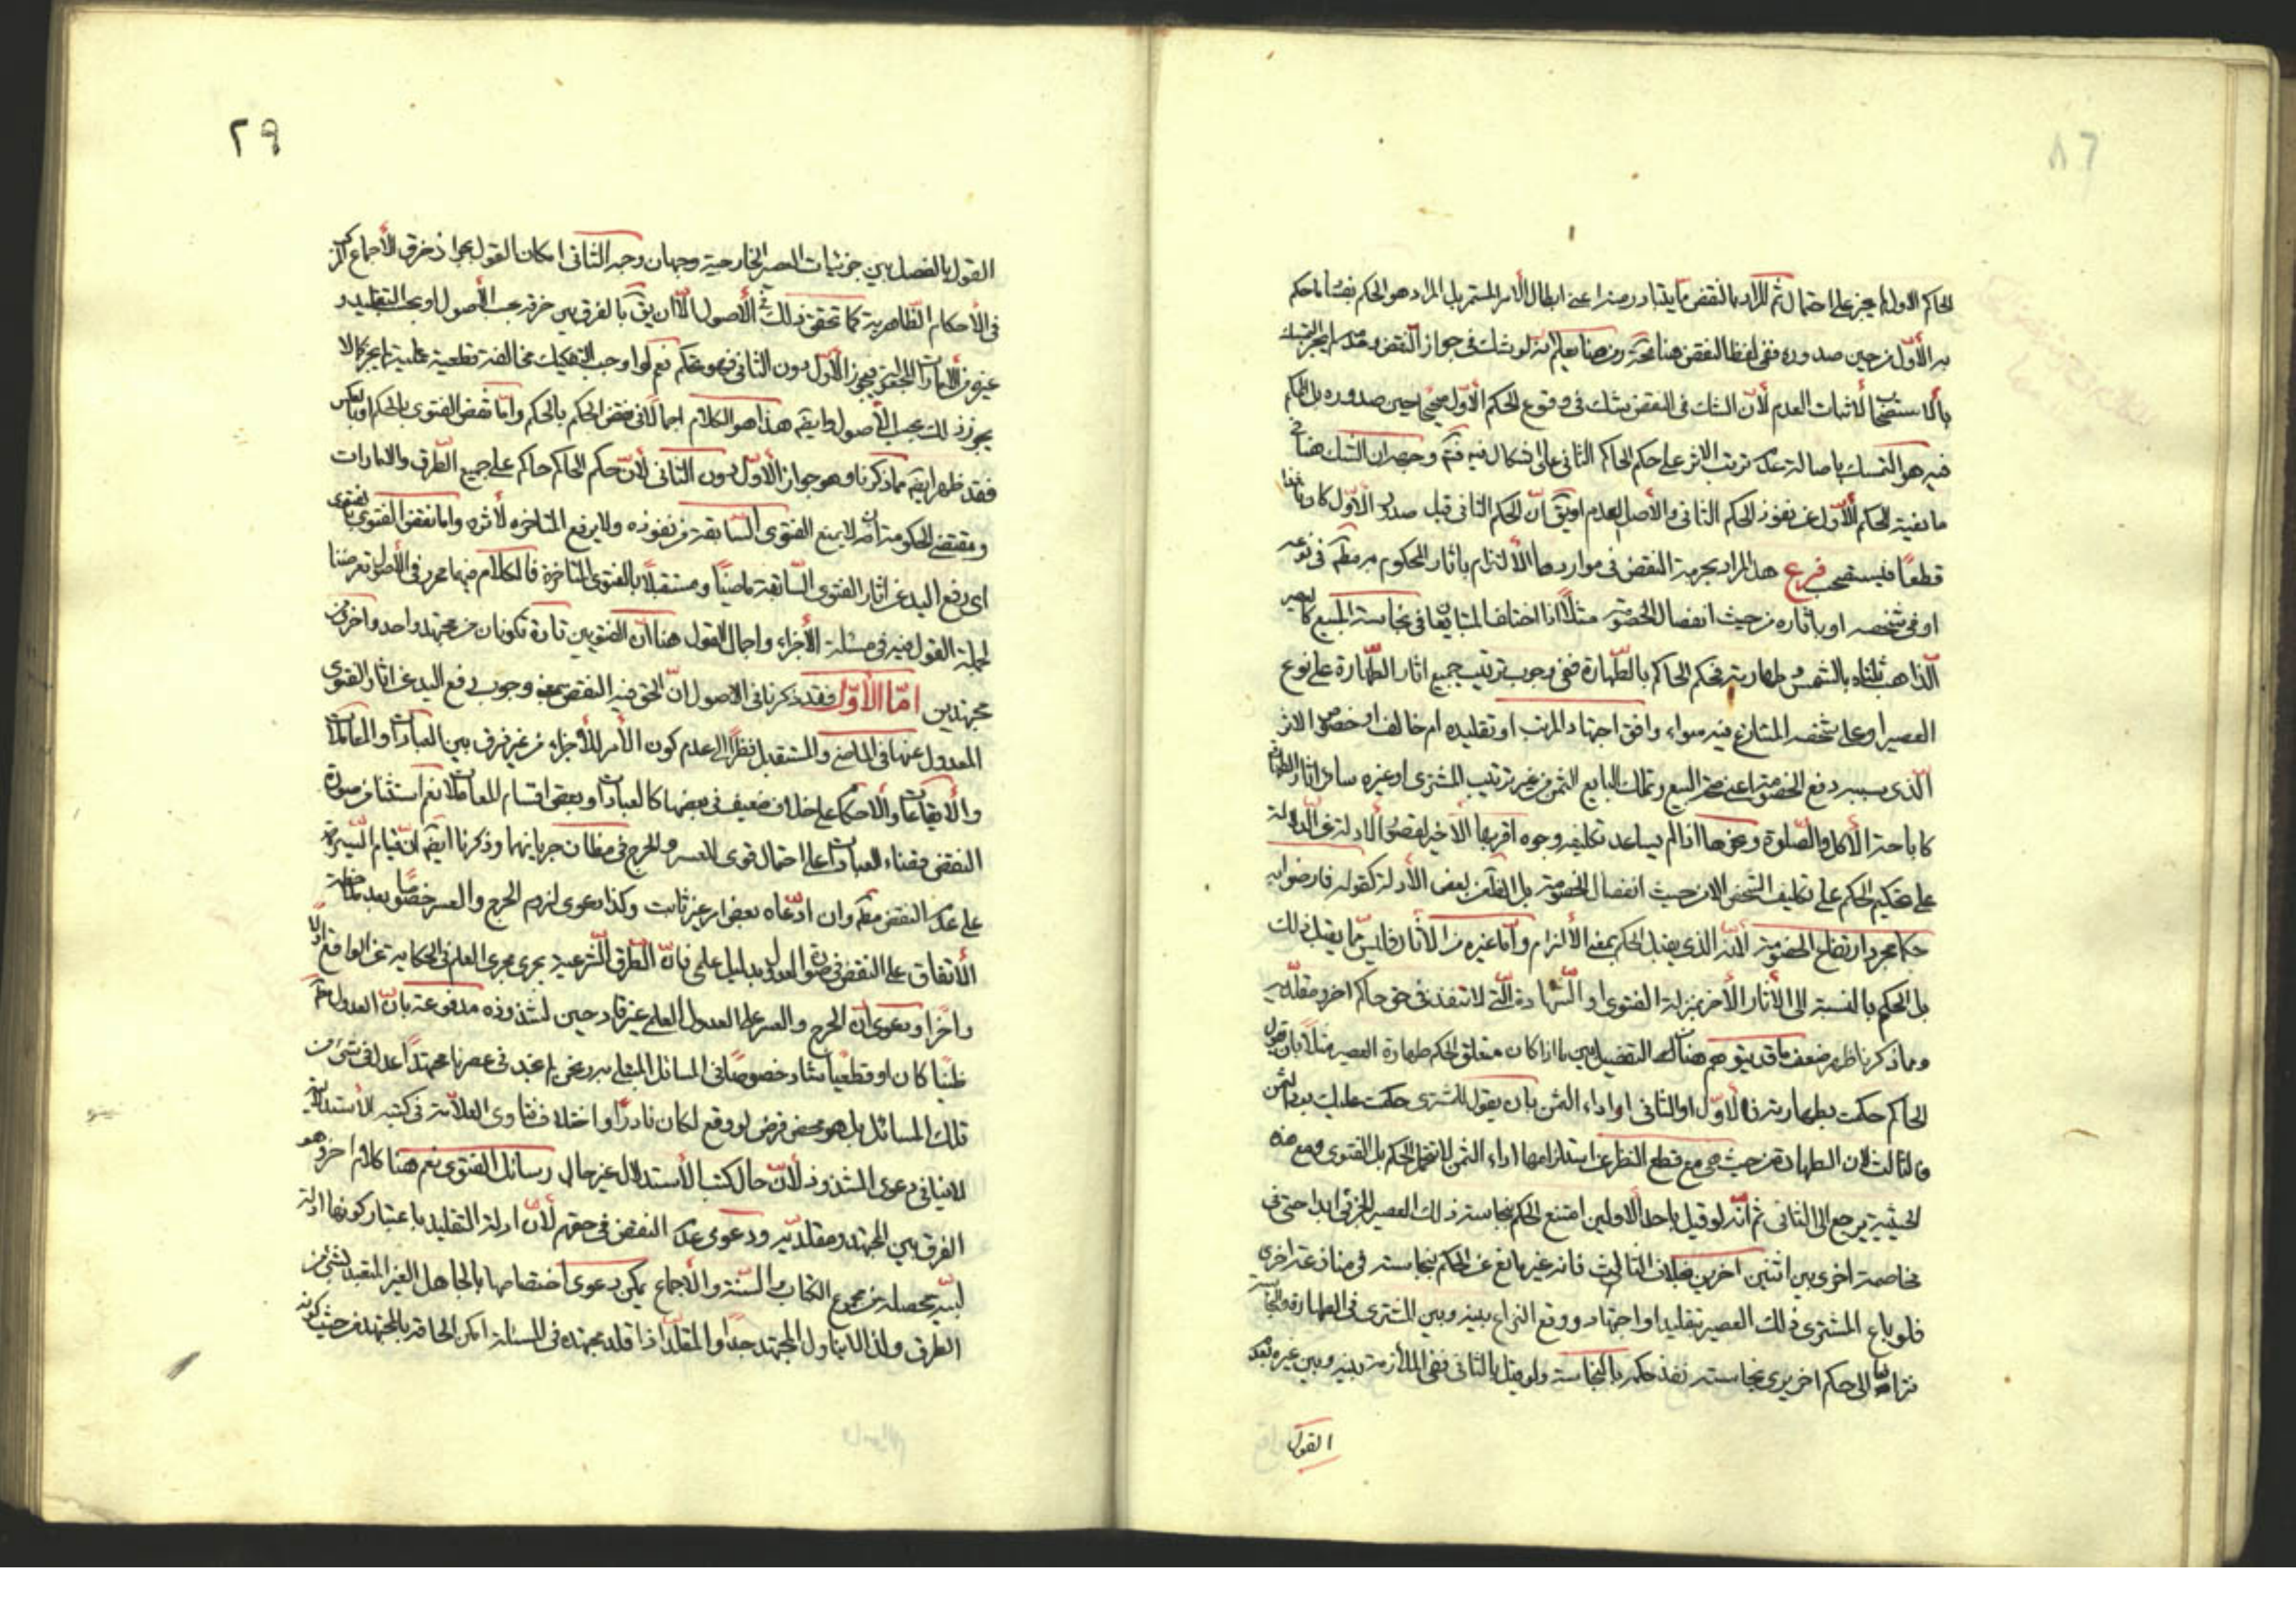 الحاكم الاول لم يجز على احتمال ثم المراد بالنقض ما يتبادر منه اعنى ابطال الأمر المستمر بل المراد هو الحكم بفساد ما حكم
به الأوّل من حين صدوره ففى لفظ النقض هنا تجوّز ومن هنا يعلم انه لو شك فى جواز النقض وعدمه لم يجز التمسك
بالاستصحاب لاثبات العدم لأنّ الشك فى النقض شك فى وقوع الحكم الأوّل صحيحا حين صدوره بل الحكم
فيه هو التمسك باصالة عدم ترتب الاثر على حكم الحاكم الثانى على اشكال فيه فتم وجهه ان الشك هنا فى
مانعية الحكم الأوّل عن نفوذ الحكم الثانى والأصل العدم او يق انّ الحكم الثانى قبل صدور الأوّل كان نافذا
قطعًا فيستصحب فرع هل المراد بحرمة النقض فى مواردها الألتزام باثار المحكوم به مطلقا فى نوعه
او فى شخصه او باثاره من حيث انفصال الخصومة مثلًا اذا اختلف المتبايعان فى نجاسة المبيع كالعصير
الذاهب ثلثاه بالشمس وطهارته فحكم الحاكم بالطّهارة ففى وجوب ترتيب جميع اثار الطّهارة على نوع
العصير او على شخصه المتنازع فيه سواء وافق اجتهاد المرتب او تقليده ام خالف او خصوص الاثر
الذى بسببه دفع الخصومة اعنى صحة البيع وتملك البايع الثمن من غير ترتيب المشترى او غيره ساير اثار الطهارة
كاباحة الأكل والصّلوة ونحوها اذا لم يساعد تكليفه وجوه اقربها الأخير لقصور الادلة عن الدّلالة
على تحكيم الحكم على تكليف الشخص الا من حيث انفصال الخصومة بل الظاهر من بعض الأدلة كقوله فارضوا به
حكما مجرد ارتفاع الخصومة لأنه الذى يقبل الحكم بمعنى الألزام وأمّا غيره من الآثار فليس مما يقبل ذلك
بل الحكم بالنسبة الى الآثار الأخر بمنزلة الفتوى او الشهادة الّتى لا تنفذ فى حق حاكم اخر ومقلّديه
ومما ذكرنا ظهر ضعف ما قد يتوهم هناك من التفصيل بين ما اذا كان متعلق الحكم طهارة العصير مثلًا بان يقول
الحاكم حكمت بطهارته فالأوّل او الثانى او اداء الثمن بان يقول للمشترى حكمت عليك بهذا الثمن
فالثالث لان الطهارة من حيث هى مع قطع النظر عن استلزامها اداء الثمن لا تتحمل الحكم بل الفتوى ومع هذه
الحيثية يرجع الى الثانى ثم انّه لو قيل باحد الأولين امتنع الحكم بنجاسة ذلك العصير الجزئى ابدا حتى فى
مخاصمة اخرى بين اثنين اخرين بخلاف الثالث فانه غير مانع عن الحكم بنجاسته فى منازعة اخرى
فلو باع المشترى ذلك العصير بتقليد او اجتهاد ووقع النزاع بينه وبين المشترى فى الطهارة والنجاسة
فترافعا الى حكم اخر يرى نجاسته نفذ حكمه بالنجاسة ولو قيل بالثانى ففى الملازمة بينه وبين غيره بعدم
القول
٢٩
القول بالفصل بين جزئيات العصير الخارجية وجهان وجه الثانى امكان القول بجواز خرق الأجماع المركب
فى الأحكام الظّاهرية كما تحقق ذلك فى الأصول الّا ان يق بالفرق بين خرقه بحسب الأصول او بحسب التقليد و
غيره من الأمارات للحقين فيجوز الأوّل دون الثانى فهو تحكم نعم لو اوجب التفكيك مخالفة قطعية عملية لم يجز كما لا
يجوز ذلك بحسب الأصول وايقه هذا هو الكلام اجمالًا فى نقض الحكم بالحكم وامّا نقض الفتوى بالحكم او بالعكس
فقد ظهر ايقه مما ذكرنا وهو جواز الأوّل دون الثانى لأنّ حكم الحاكم حاكم على جميع الطّرق والامارات
ومقتضى الحكومة انه لا يمنع الفتوى السّابقة من نفوذه ولا يرفع المتاخره لأثره واما نقض الفتوى بالفتوى
اى رفع اليد عن اثار الفتوى السّابقة ماضيًا ومستقبلًا بالفتوى المتاخرة فالكلام فيها محرر فى الأصول تعرضنا
لجملة القول فيه فى مسئلة الأجزاء واجمال القول هنا انّ الفتويين تارة تكونان من مجتهد واحد واخرى من
مجتهدين امّا الأوّل فقد ذكرنا فى الاصول انّ الحق فيه النقض بمعنى وجوب رفع اليد عن اثار الفتوى
المعدول عنها فى الماضى والمستقبل نظرًا الى عدم كون الأمر للأجزاء من غير فرق بين العبادات والمعاملات
والأيقاعات والأحكام على خلاف ضعيف فى بعضها كالعبادات وبعض اقسام المعاملات نعم استثنا من صورة
النقض قضاء العبادات على احتمال قوى للعسر والحرج فى مظان جريانها وذكرنا ايقه انّ قيام السّيرة
على عدم النقض مطلقا وان ادّعاه بعض امر غير ثابت وكذا دعوى لزوم الحرج والعسر خصوصًا بعد ملاحظة
الأتفاق على النقض فى صورة العدول بدليل علمى فانّ الطّرق الشّرعية يجرى مجرى العلم فى الحكاية عن الواقع اولا
واخرا ودعوى انّ الحرج والعسر على العدول العلمى غير قادحين لشذوذه مدفوعة بانّ العدول مطلقا
ظنيًا كان او قطعيًا شاذ خصوصًا فى المسائل المبتلى بها ونحن لم نجد فى عصرنا مجتهدًا عدل فى شئ من
تلك المسائل بل هو محض فرض لو وقع لكان نادرًا واختلاف فتاوى العلّامة فى كتبه الأستدلالية
لا ينافى دعوى الشذوذ لأنّ حال كتب الأستدلال غير حال رسائل الفتوى نعم هنا كلام اخر وهو
الفرق بين المجتهد ومقلّديه ودعوى عدم النقض فى حقهم لأنّ ادلة التقليد باعتبار كونها ادلة
لبيّه محصله من مجموع الكتاب والسّنة والأجماع يمكن دعوى اختصاصها بالجاهل الغير المتعبد بشئ من
الطرق ولذا لا يتناول المجتهد جدًا والمقلّد اذا قلد مجتهده فى المسئلة امكن الحاقه بالمجتهد من حيث كونه